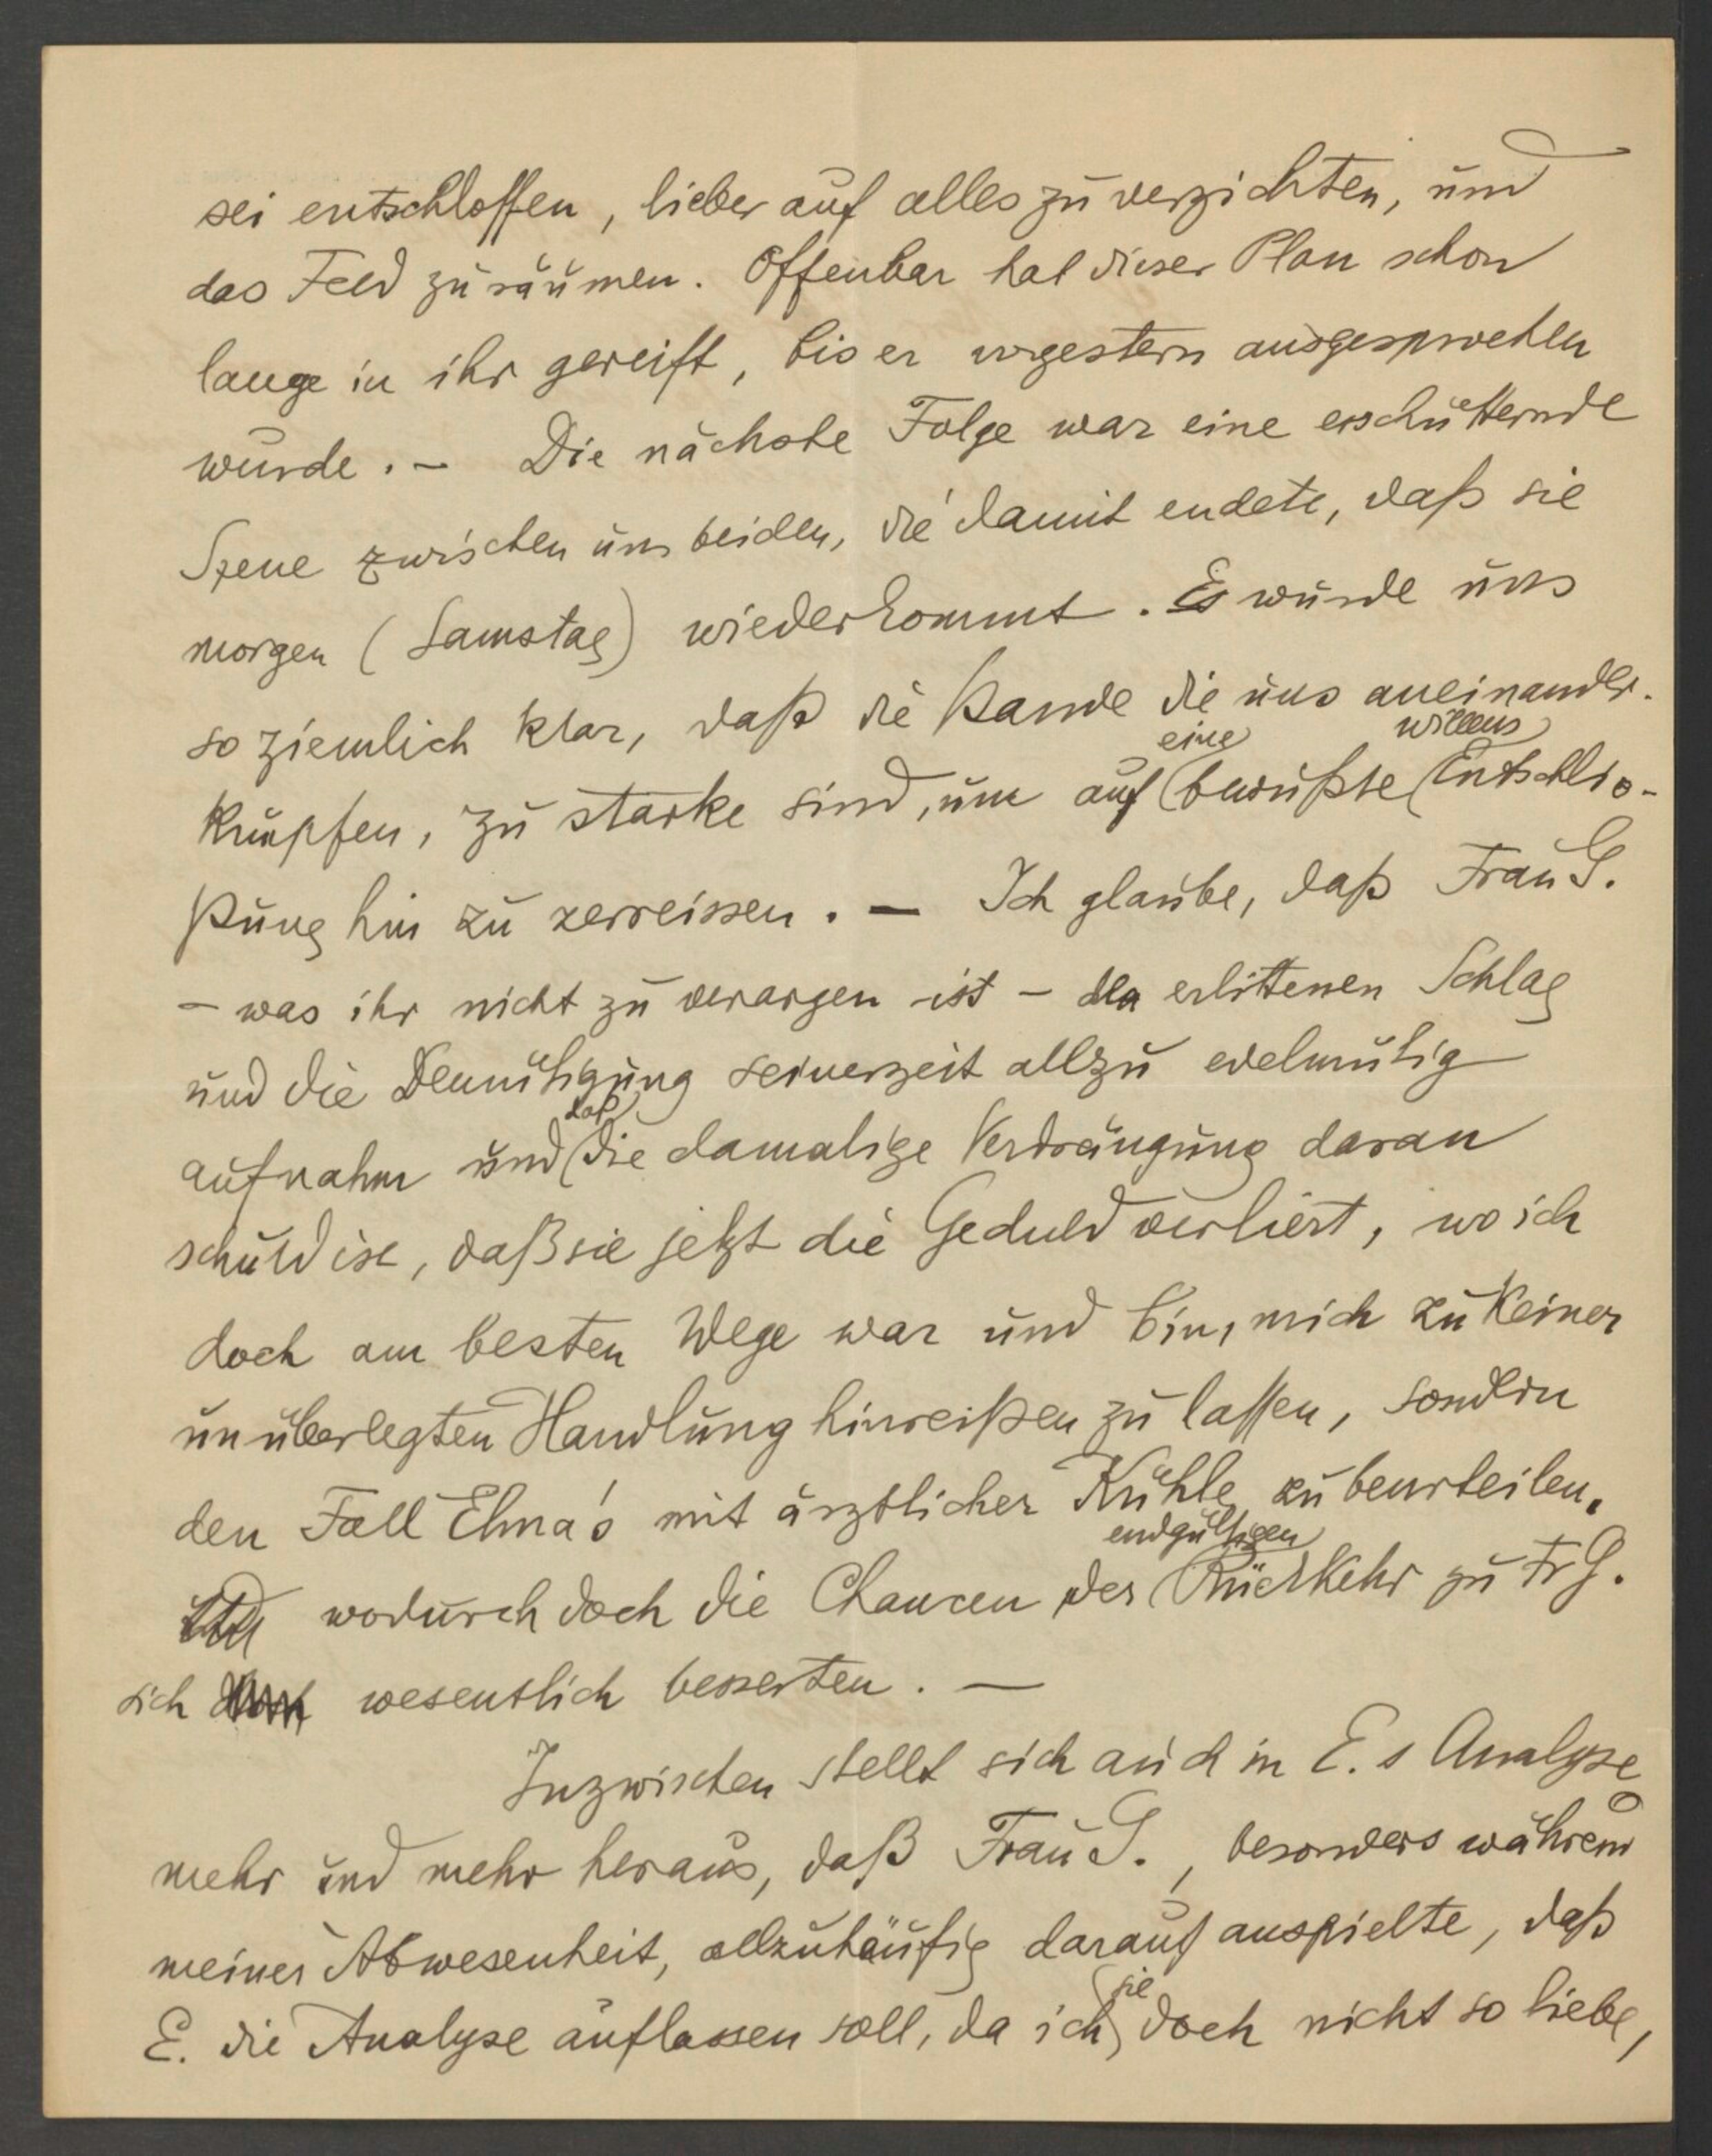 sei entschlossen, lieber auf alles zu verzichten, und
das Feld zu räumen. Offenbar hat dieser Plan schon
lange in ihr gereift, bis er vorgestern ausgesprochen
wurde. – Die nächste Folge war eine erschütternde
Szene zwischen uns beiden, die damit endete, daß sie
morgen (Samstag) wiederkommt. Es wurde uns
so ziemlich klar, daß die Bande die uns aneinander-
eine willens
knüpfen, zu starke sind, um auf bewußte Entschlie-
ßung hin zu zerreissen. – Ich glaube, daß Frau G.
– was ihr nicht zu verargen ist – den erlittenen Schlag
und die Demütigung seinerzeit allzu edelmütig
daß
aufnahm und die damalige Verdrängung daran
schuld ist, daß sie jetzt die Geduld verliert, wo ich
doch am besten Wege war und bin, mich zu keiner
unüberlegten Handlung hinreißen zu lassen, sondern
den Fall Elma's mit ärztlicher Kühle zu beurteilen.
endgültigen
wodurch doch die Chancen der Rückkehr zu Fr G.
sich wesentlich besserten. –
Inzwischen stellt sich auch in E.s Analyse
mehr und mehr heraus, daß Frau G., besonders während
meiner Abwesenheit, allzuhäufig darauf anspielte, daß
sie
E. die Analyse auflassen soll, da ich doch nicht so liebe,